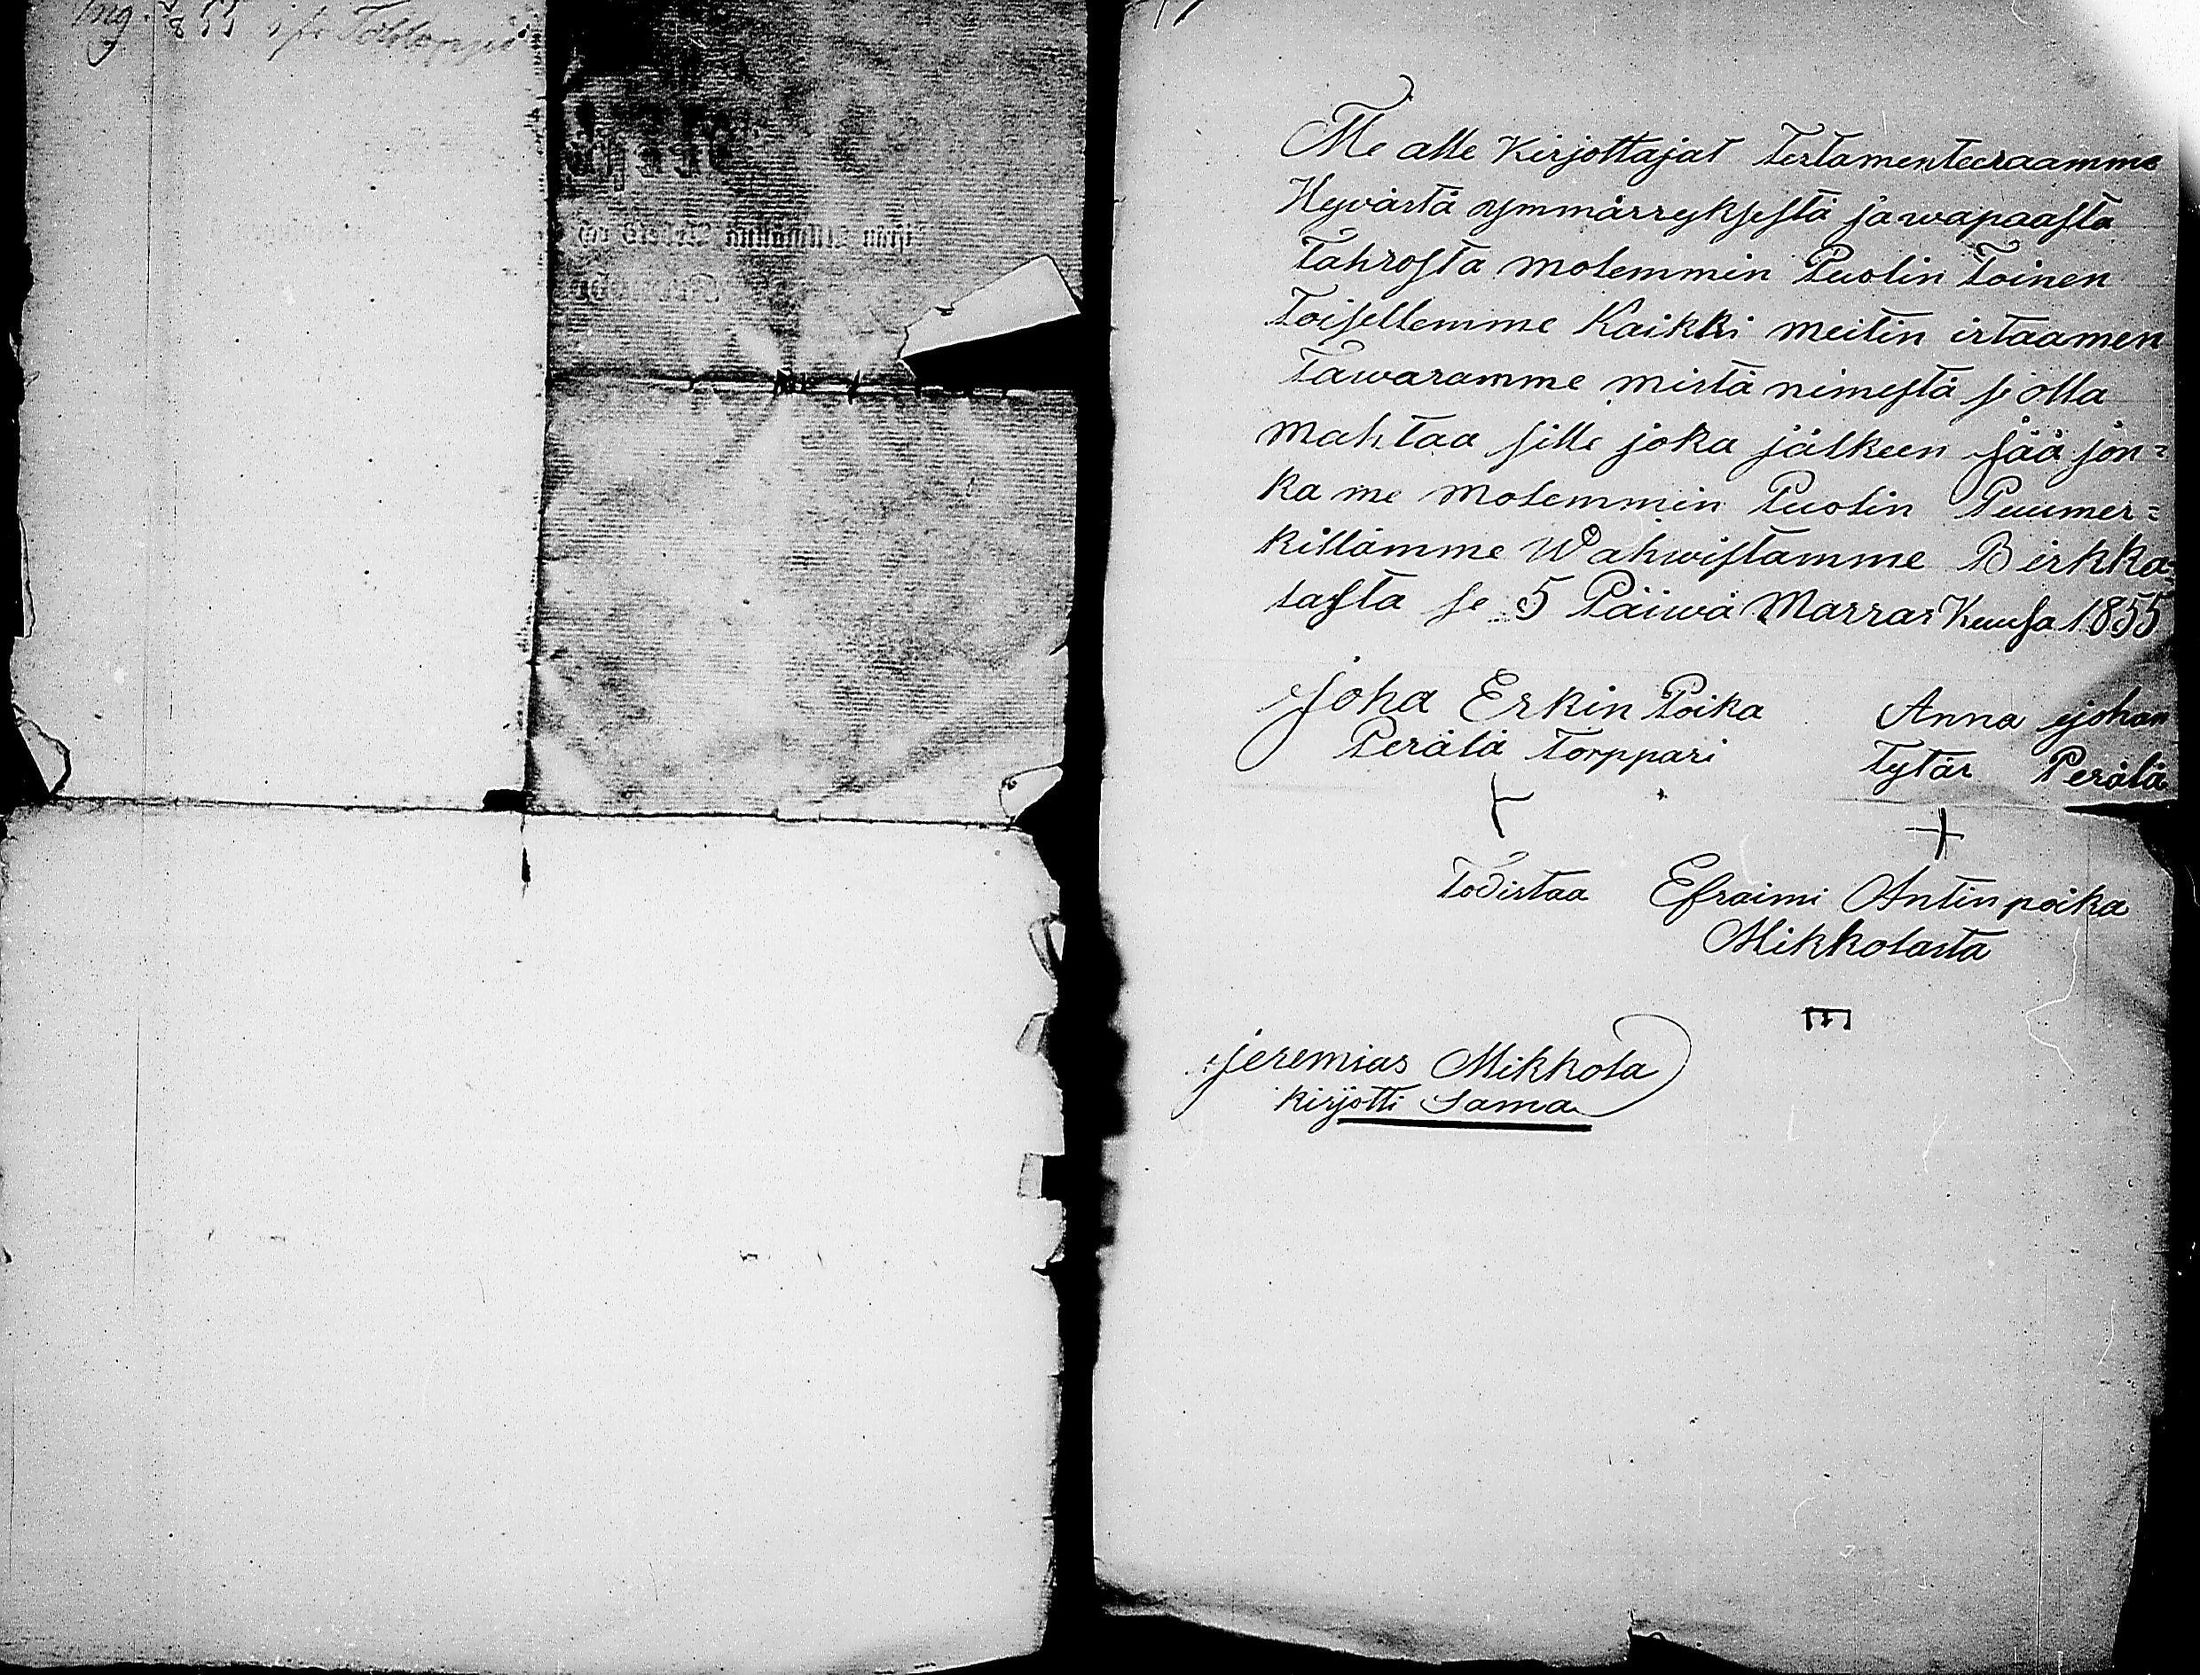 Me alle Kirjottajat Testamenteeraamme
Hyvästä ymmärryksestä ja wapaasta
Tahrosta molemmin Puolin Toinen
Toisellemme Kaikki meitin irtaamen
Tawaramme mistä nimestä se olla
mahtaa sille joka jälkeen jää jon=
ka me molemmin Puolin Puumer=
killämme Wahwistamme Birkka=
lasta se 5 Päiwä Marras Kuusa 1855
Joha Erkin Poika Anna Johan
Perälä Torppari Tytär Perälä
Todistaa Efraimi Antinpoika
Mikkolasta
Jeremias Mikkola
Kirjotti Sama